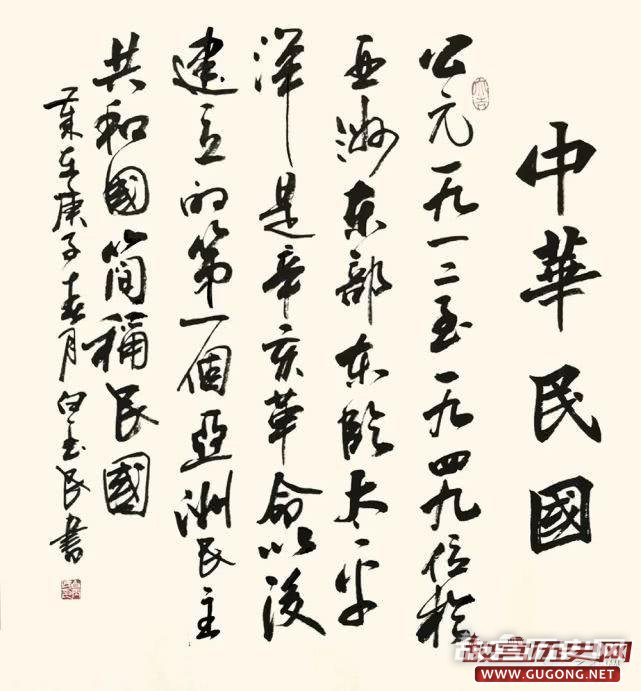 中華民國
公元一九一二至一九四九位於
亚洲东部东臨太平
洋是辛亥革命以後
建立的第一個亞洲民主
共和國简稱民國
歲在庚子春月白玉民書
大吉
故宫历史网
WWW.GUGONG.NET